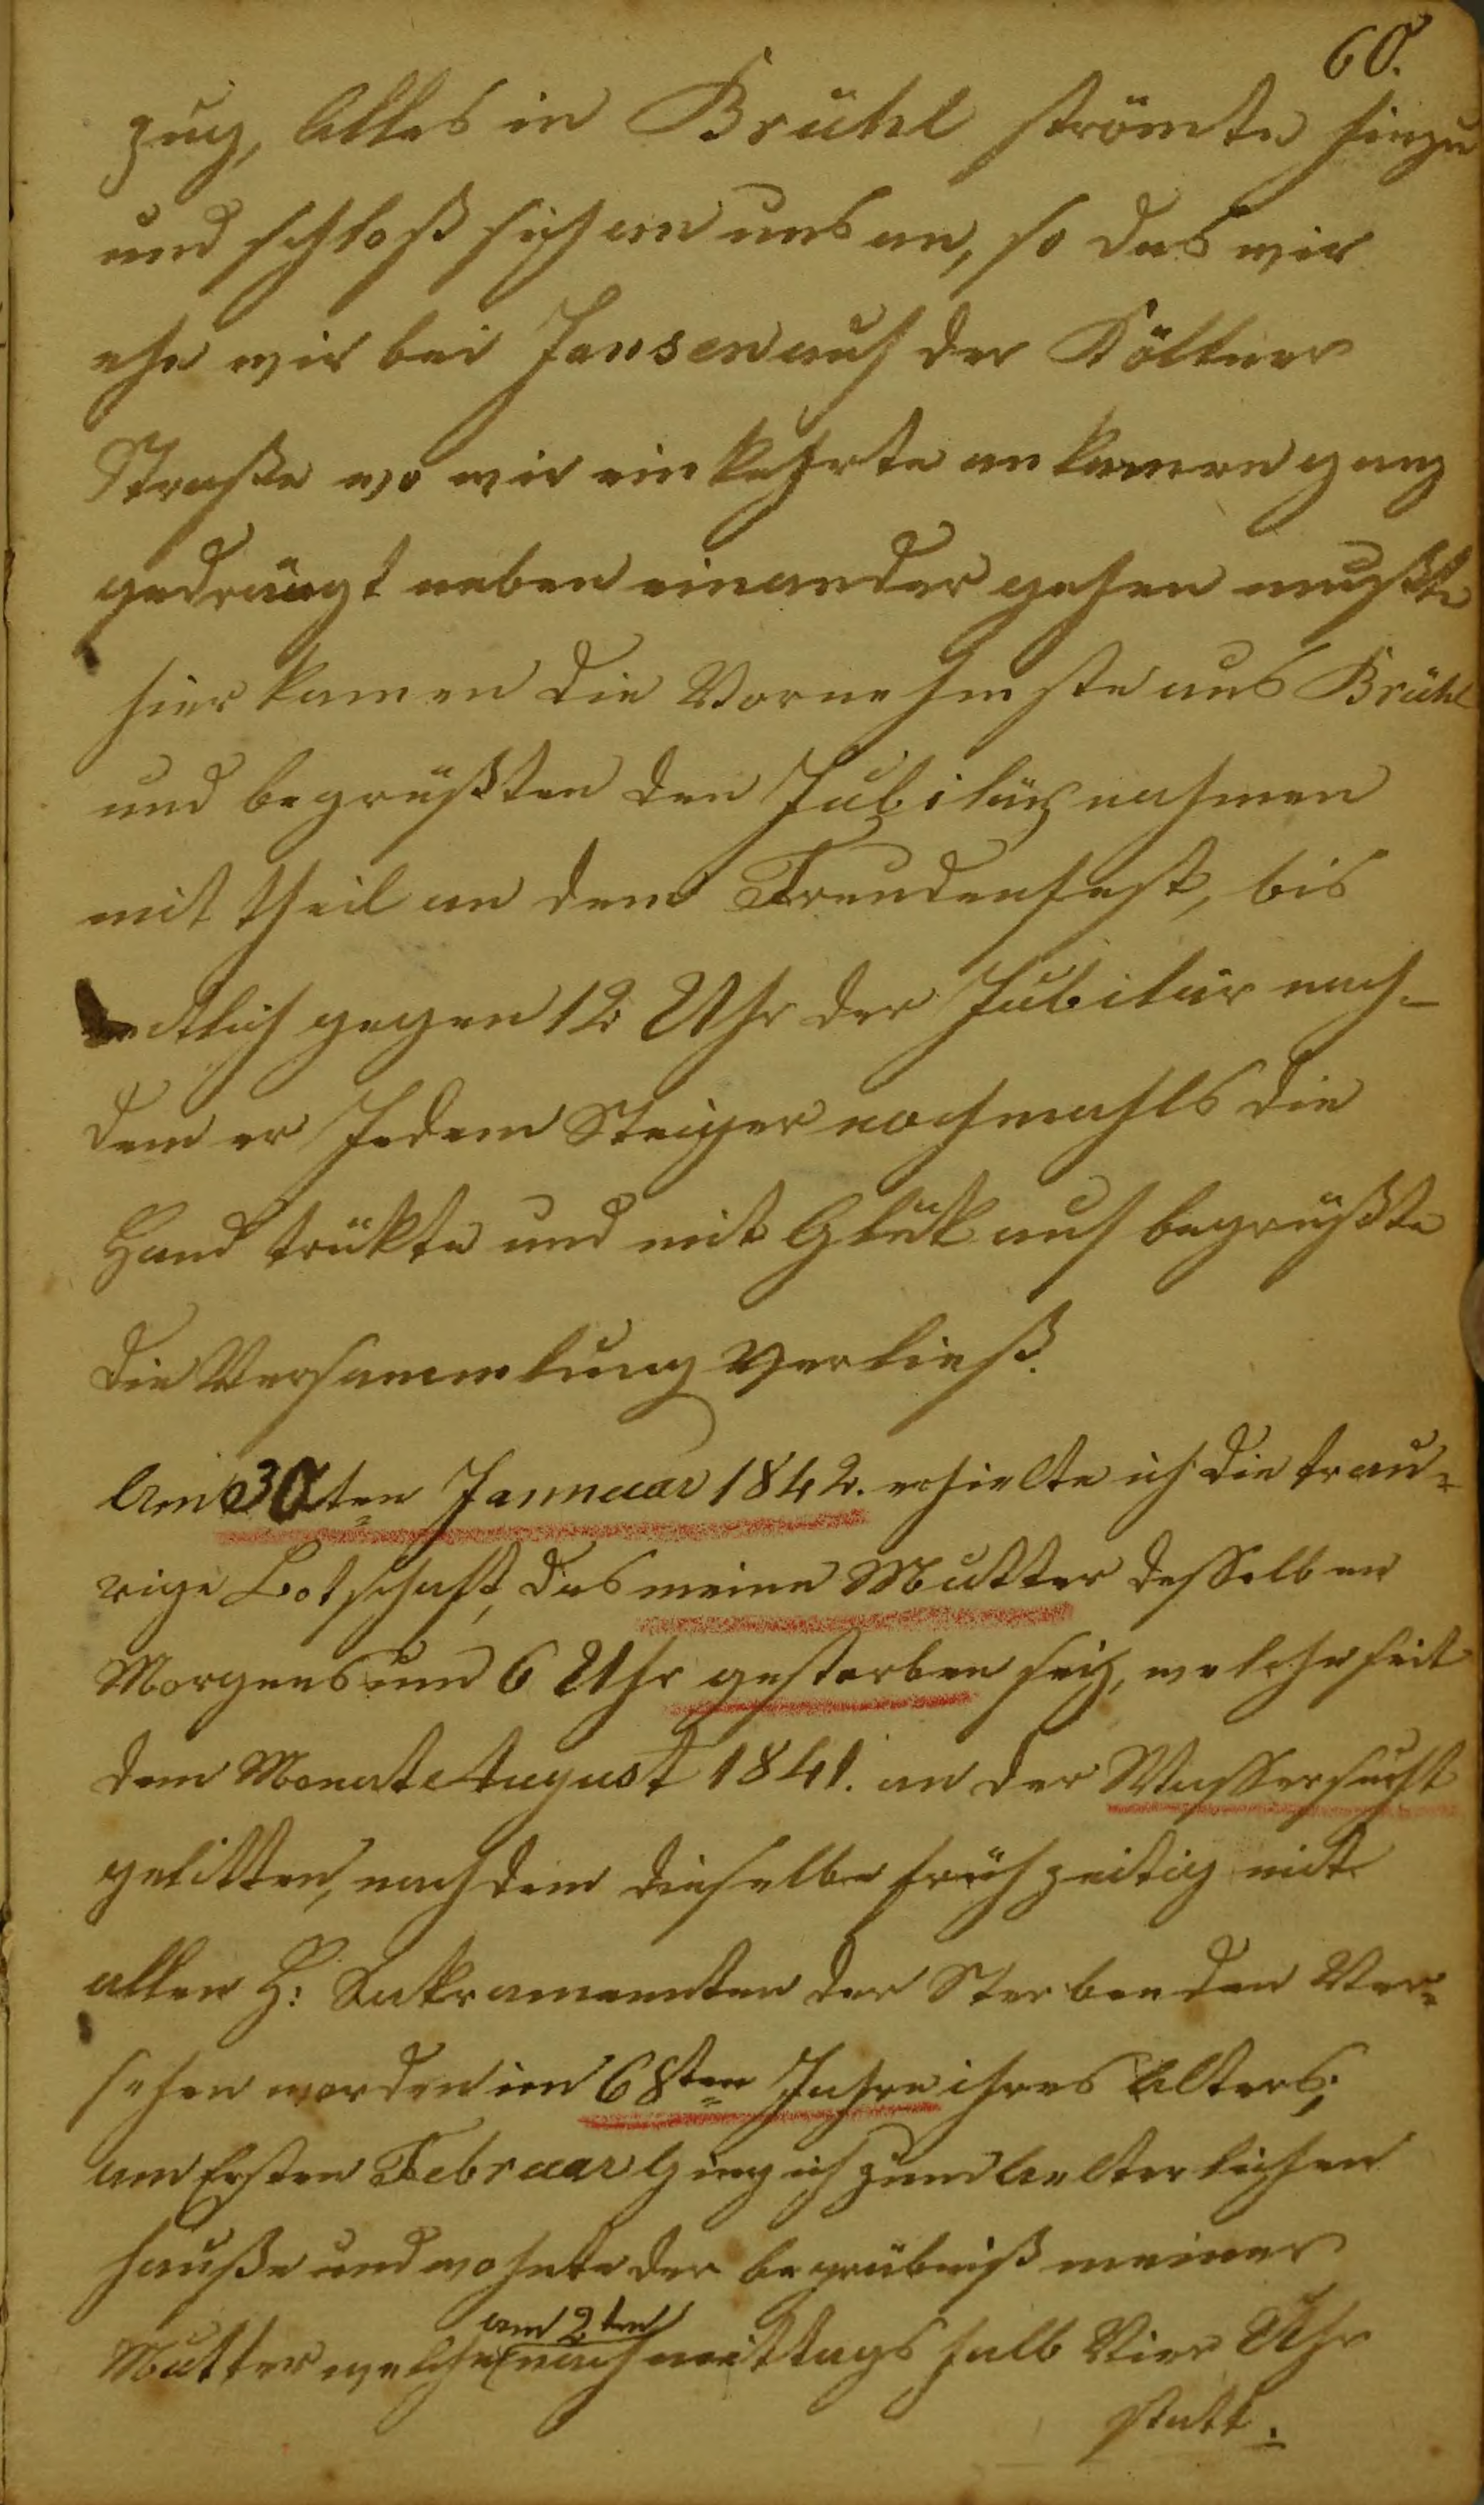 60.
zug, Alles in Brühl strömte hinzu
und schloß sich an uns an, so das wir
ehe wir bei Jansen auf der Köllner
Straße wo wir einkehrte ankamen ganz
gedrängt neben einander gehen mußte
hier kamen die Vornehmste aus Brühl
und begrüßten den Jubilär nahmen
mit theil an dem Freudenfest, bis
endtlich gegen 12 Uhr der Jubilär nach-
dem er Jedem Steiger nochmahls die
Hand trükte und mit Glük auf begrüßte
die Versammlung verließ.
Am 30ten Jannuar 1842. erhielte ich die trau-
rige Botschaft, das meine Mutter desselben
Morgens um 6 Uhr gestorben seÿ, welche seit
dem Monate August 1841. an der Wassersucht
gelitten, nachdem dieselbe frühzeitig mit
allen H: Sakramenten der Sterbenden Ver-
sehen worden im 68ten Jahre ihres Alters;
am Ersten Februar Ging ich zum Aelterlichen
hauße und wohnte der begräbniß meiner
am 2ten
Mutter welche nachmittags halb Vier Uhr
statt.